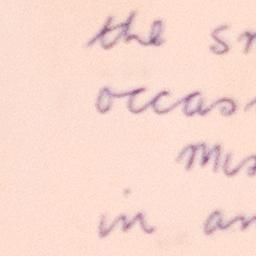 the sm
occas
Mis
in an